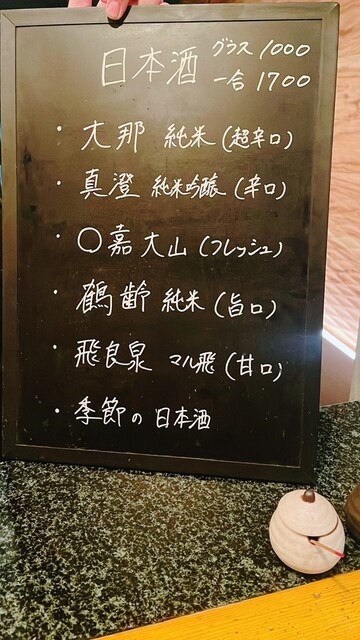 日本酒 グラス 1000
一合 1700
・大那 純米 (超辛口)
・真澄 純米吟醸 (辛口)
・〇嘉大山 (フレッシュ)
・鶴齢 純米 (旨口)
・飛良泉 マル飛 (甘口)
・季節の日本酒